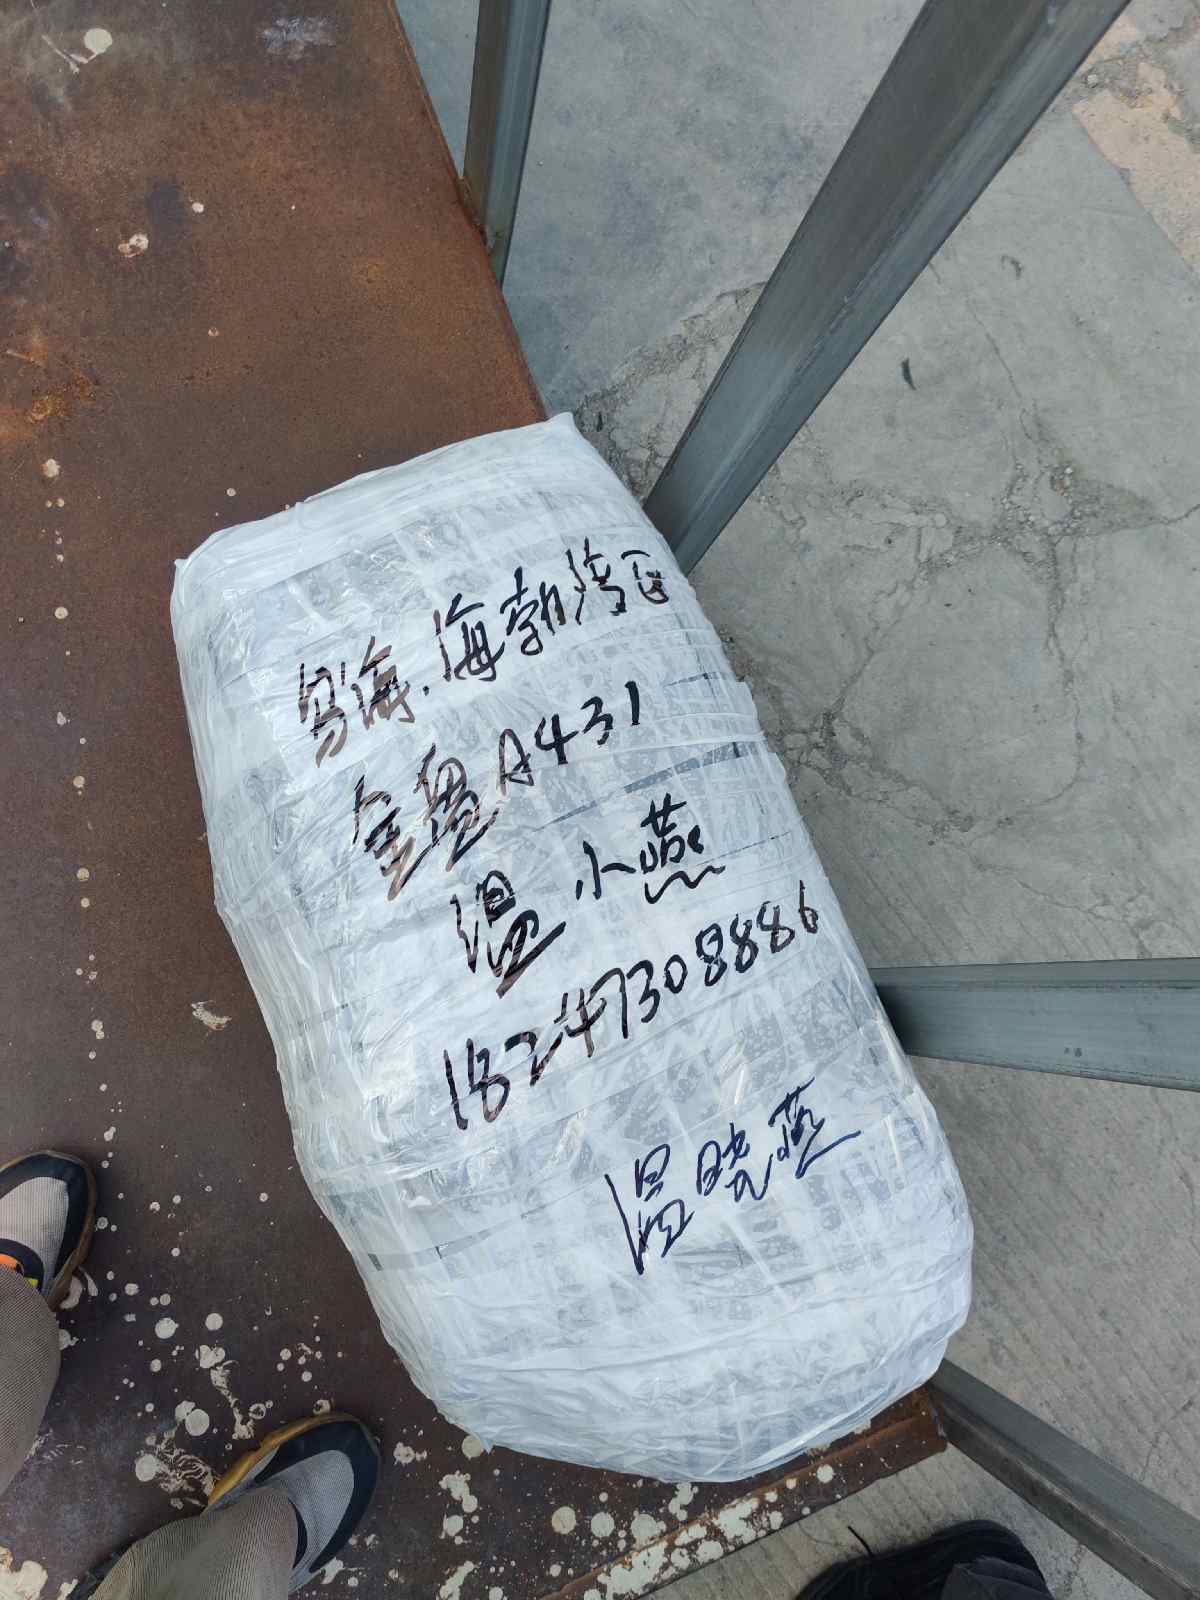 乌海.海勃湾区
金盈A431
温小燕
18247308886
温晓燕